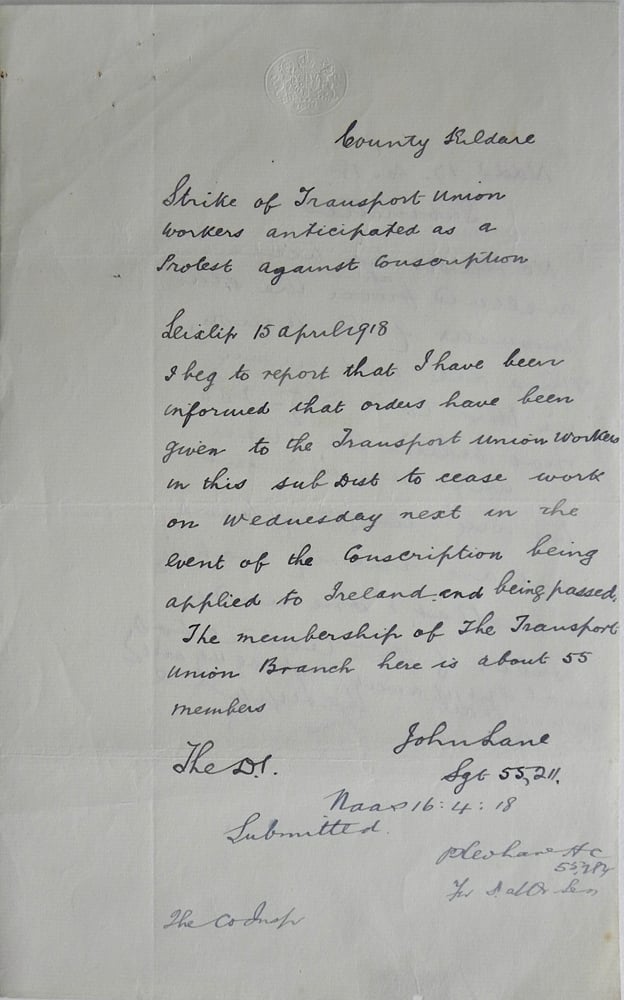 County Kildare
Strike of Transport Union
Workers anticipated as a
Protest against Conscription
Leixlip 15 April 1918
I beg to report that I have been
informed that orders have been
given to the Transport Union Workers
in this sub Dist to cease work
on Wednesday next in the
event of the Conscription being
applied to Ireland and being passed.
The membership of The Transport
Union Branch here is about 55
members
John Lane
The D.I.
Sgt 55,211.
Naas 16:4:18
Submitted.
HC
The Co Insp